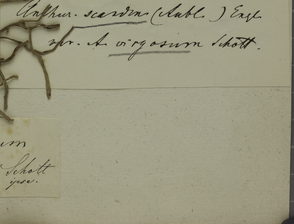 Anthur. scandens (Aubl.) Engl
var. A virgosum Schott.
um
Schott
ipse.